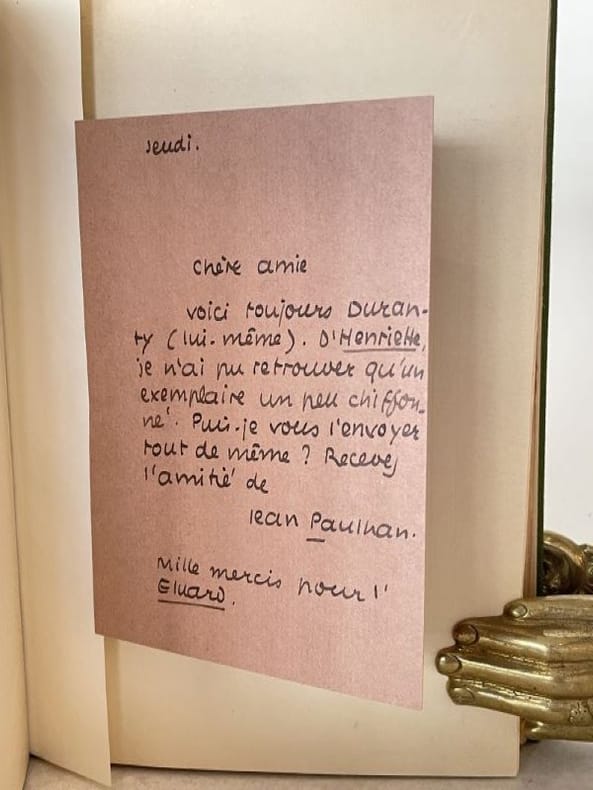 Jeudi.
Chère amie
voici toujours Duran-
ty (lui-même). D'Henriette,
je n'ai pu retrouver qu'un
exemplaire un peu chiffon-
né. Puis-je vous l'envoyer
tout de même ? Recevez
l'amitié de
Jean Paulhan.
Mille mercis pour l'
Eluard.